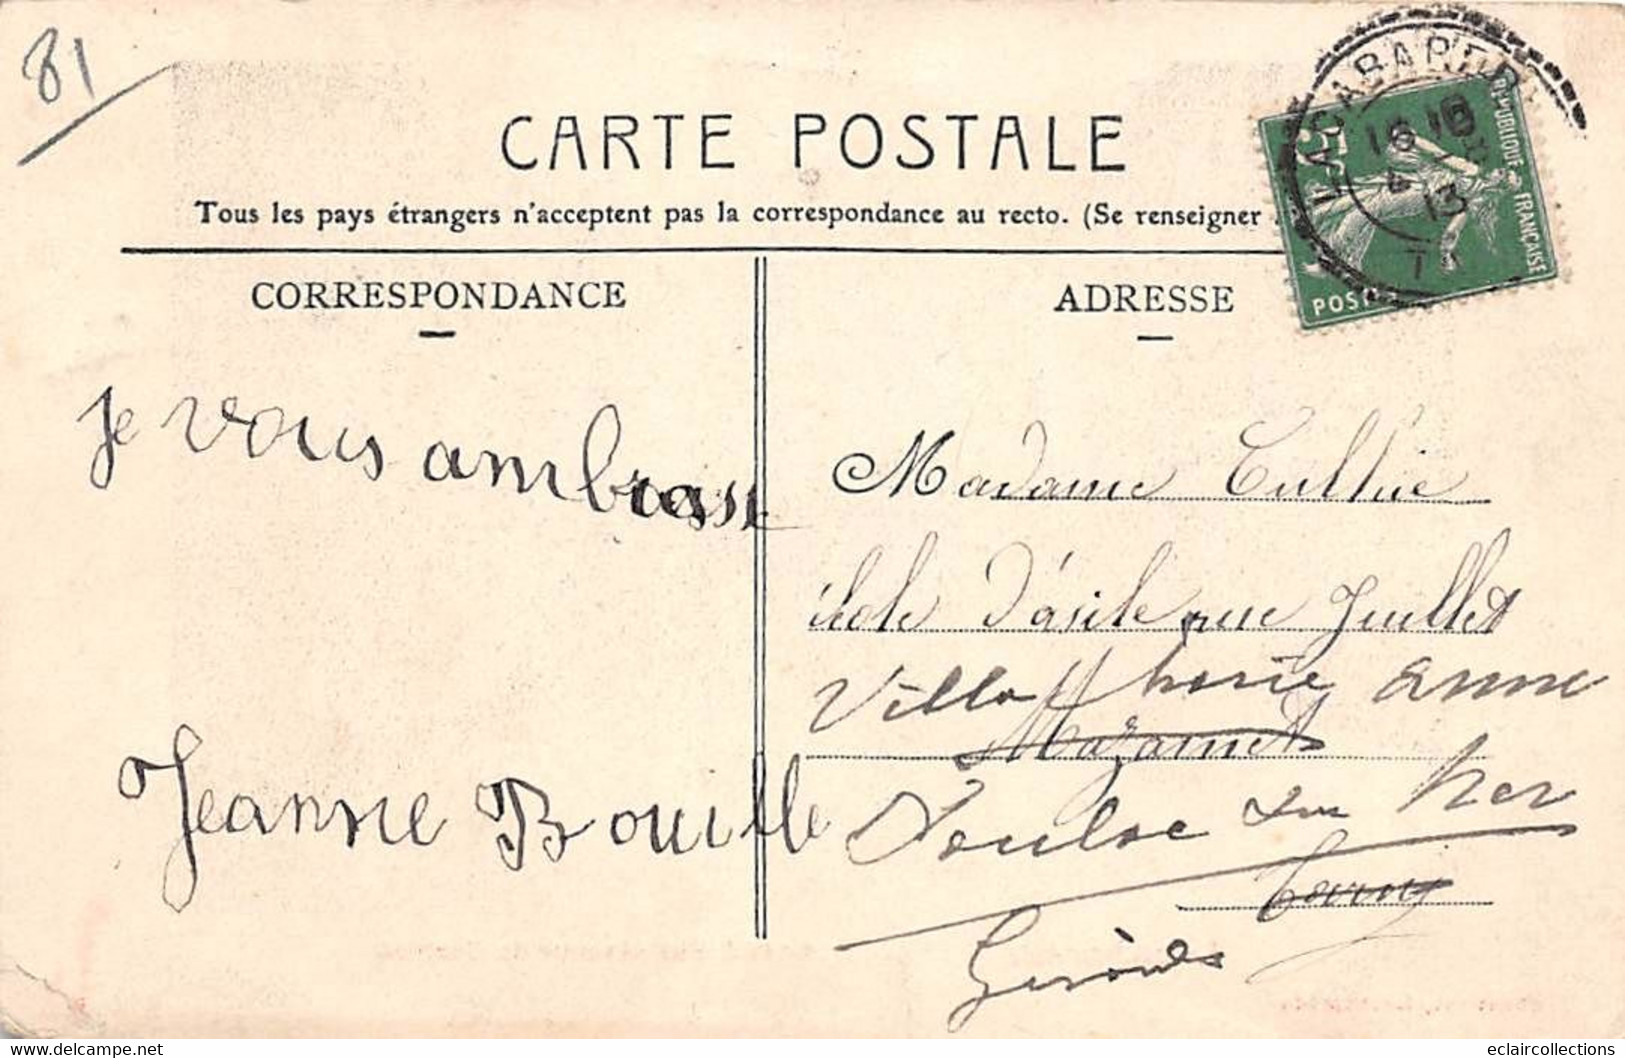 81
CARTE POSTALE
Tous les pays étrangers n'acceptent pas la correspondance au recto. (Se renseigner
LACABAREDE
16 10
4 13
RÉPUBLIQUE FRANÇAISE
5
POST
CORRESPONDANCE
ADRESSE
Je vous ambrasse
Jeanne Bouille
Madame
école d'asile rue Juillet
Villa Marie Anne
Mazamet
Soulac sur Mer
Gironde
eclaircollections